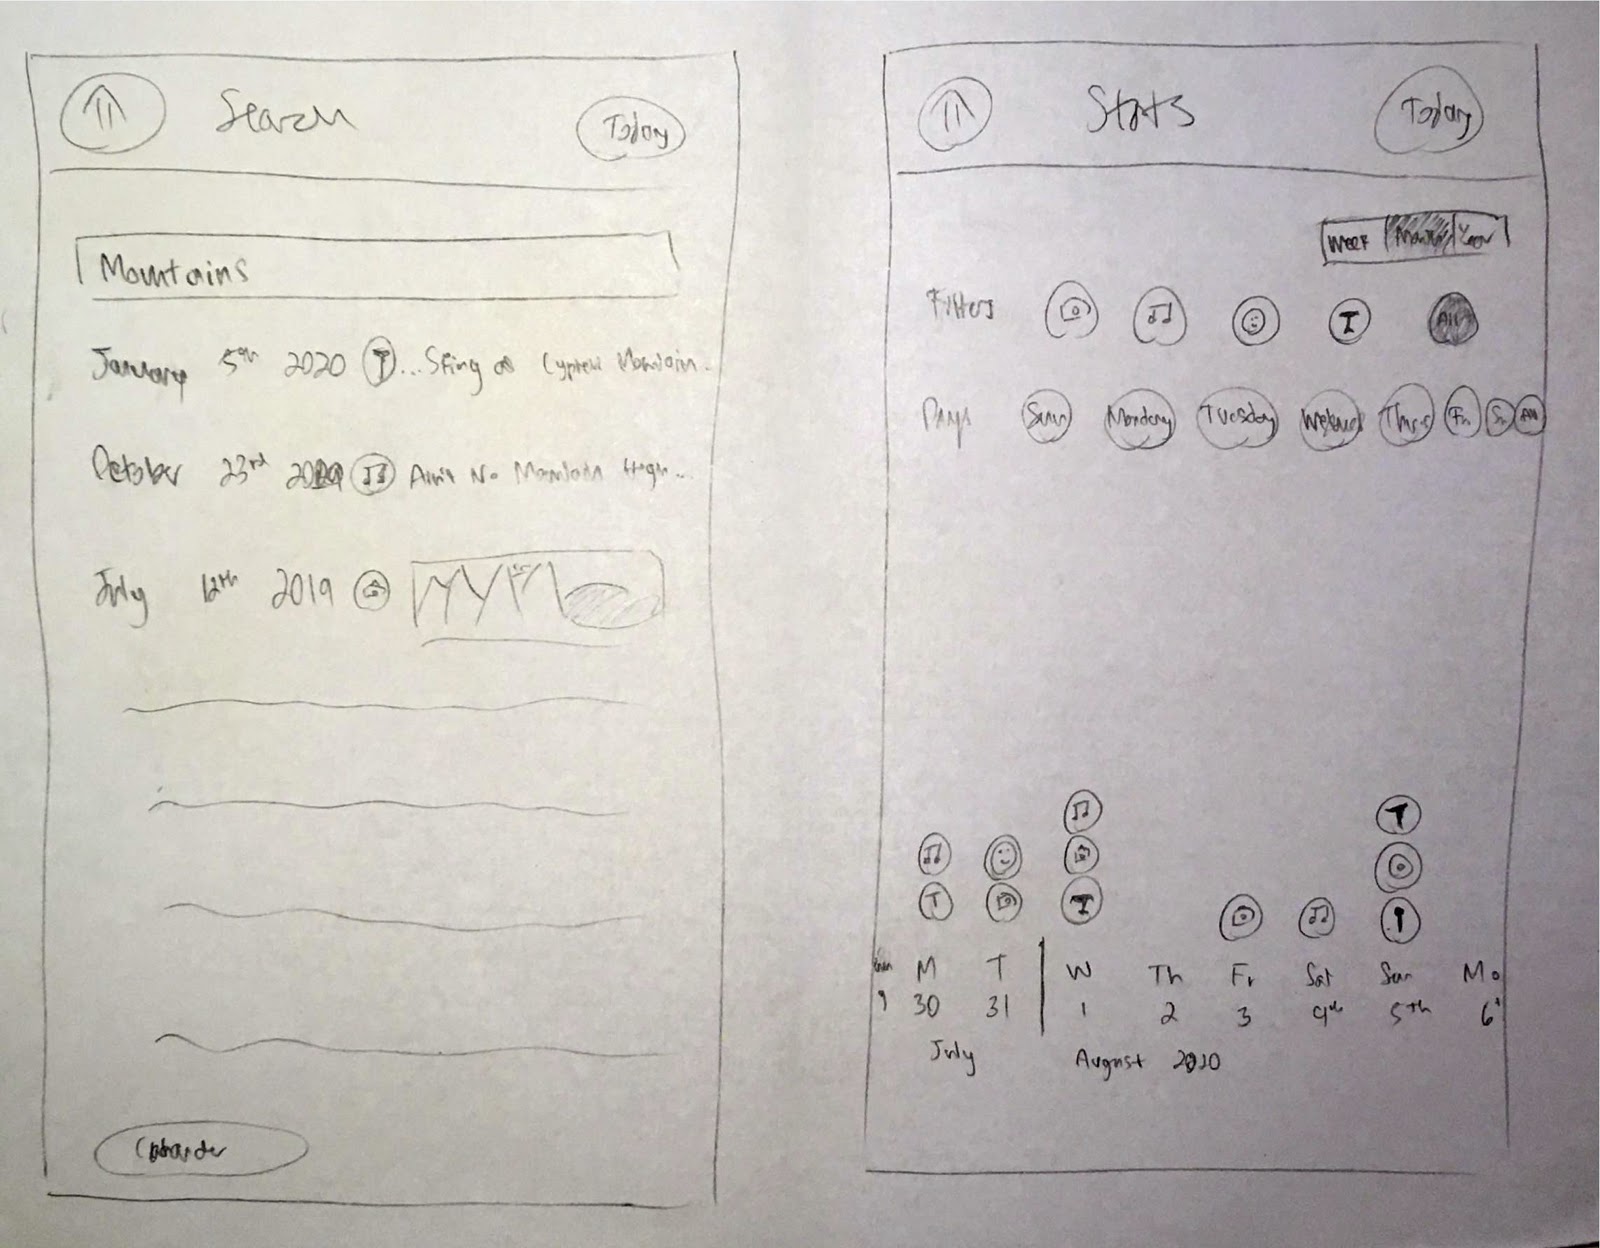 Search
Today
Mountains
January 5th 2020 T ... Sting at Cypress Mountain..
October 23rd 2019 Ain't No Mountain High...
July 12th 2019
Calendar
Stats
Today
Week Month Year
Filters T All
Days Sun Monday Tuesday Thurs Fri All
T
T T
M T W Th Fr Sat Sun Mo
9 30 31 1 2 3 4th 5th 6t
July August 2020